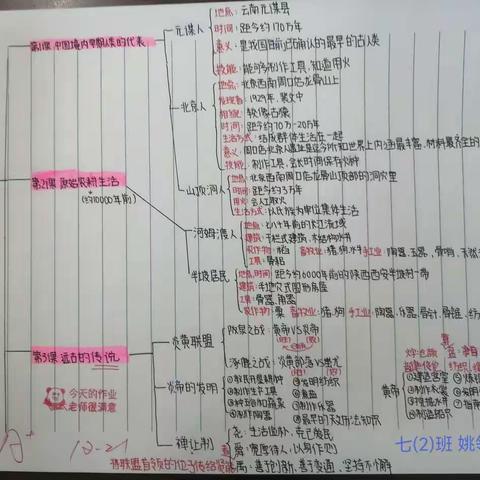 第1课 中国境内早期人类的代表
元谋人
地点: 云南元谋县
时间: 距今约170万年
意义: 是我国目前已确认的最早的古人类
技能: 能够制作工具, 知道用火
北京人
地点: 北京西南周口店龙骨山上
发现者: 1929年, 裴文中
相貌: 较像古猿
时间: 距今约70万-20万年
生活方式: 结成群体生活在一起
意义: 周口店北京人遗址是迄今所知世界上内涵最丰富, 材料最齐全的
技能: 制作工具, 会长时间保存火种
山顶洞人
地点: 北京西南周口店龙骨山顶部的洞穴里
时间: 距今约3万年
用火: 会人工取火
生活方式: 以氏族为单位集体生活
第2课 原始农耕生活
(约10000年前)
河姆渡人
七八千年前的长江流域
建筑: 干栏式建筑, 木结构水井
农作物: 水稻 畜牧业: 猪, 狗, 水牛 手工业: 陶器, 玉器, 骨哨,
工具: 骨耜
半坡居民
地点,时间: 距今约6000年前的陕西西安半坡村一带
建筑: 半地穴式圆形房屋
工具: 骨器, 角器
农作物: 粟 畜牧业: 猪, 狗 手工业: 陶器, 乐器, 骨针, 骨锥, 纺
第3课 远古的传说
炎黄联盟
阪泉之战: 黄帝VS炎帝
(胜) (败)
涿鹿之战: 炎黄部落VS蚩尤
炎帝的发明
①教民开垦耕种
②制作生产工具
⑤发明纺织
⑥煮盐
⑦制作乐器
④制作陶器
⑧最早的天文历法知识
黄帝
①建造宫室
②制作衣裳
④制造船只
禅让制
尧: 生活俭朴, 克己爱民
舜: 宽厚待人, 以身作则
禹: 善于创新, 善于变通, 坚持不懈
将联盟首领的位子传给贤德
今天的作业
老师很满意
12-21
七(2)班 姚